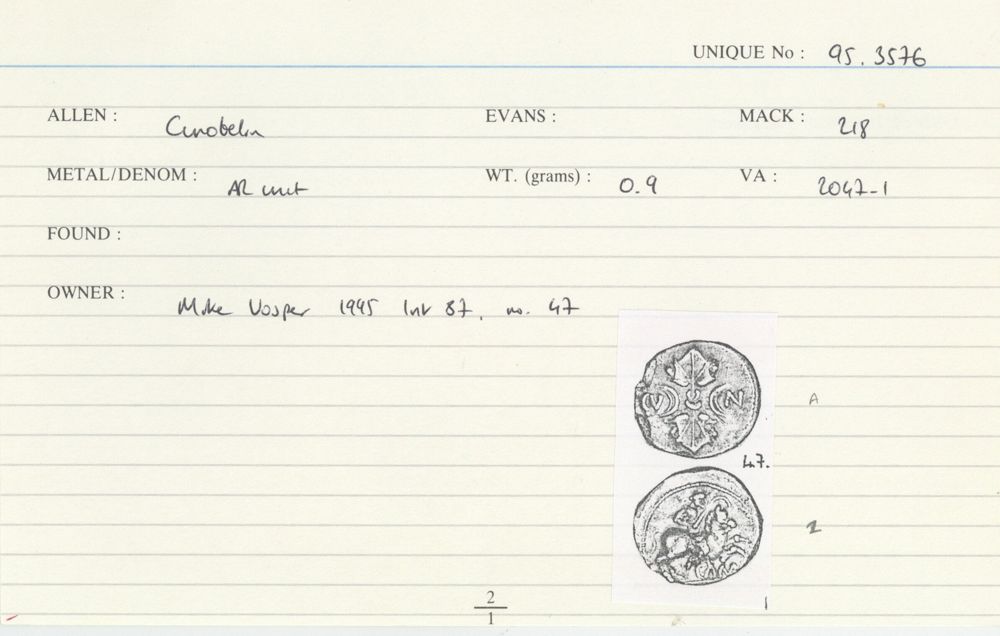 UNIQUE No : 95.3576
ALLEN : Cunobelin EVANS : MACK : 218
METAL/DENOM : AR unit WT. (grams) : 0.9 VA : 2047-1
FOUND :
OWNER : Mike Vosper 1995 Int 87, no. 47
V N
A
47.
2
CAM
2
1
1